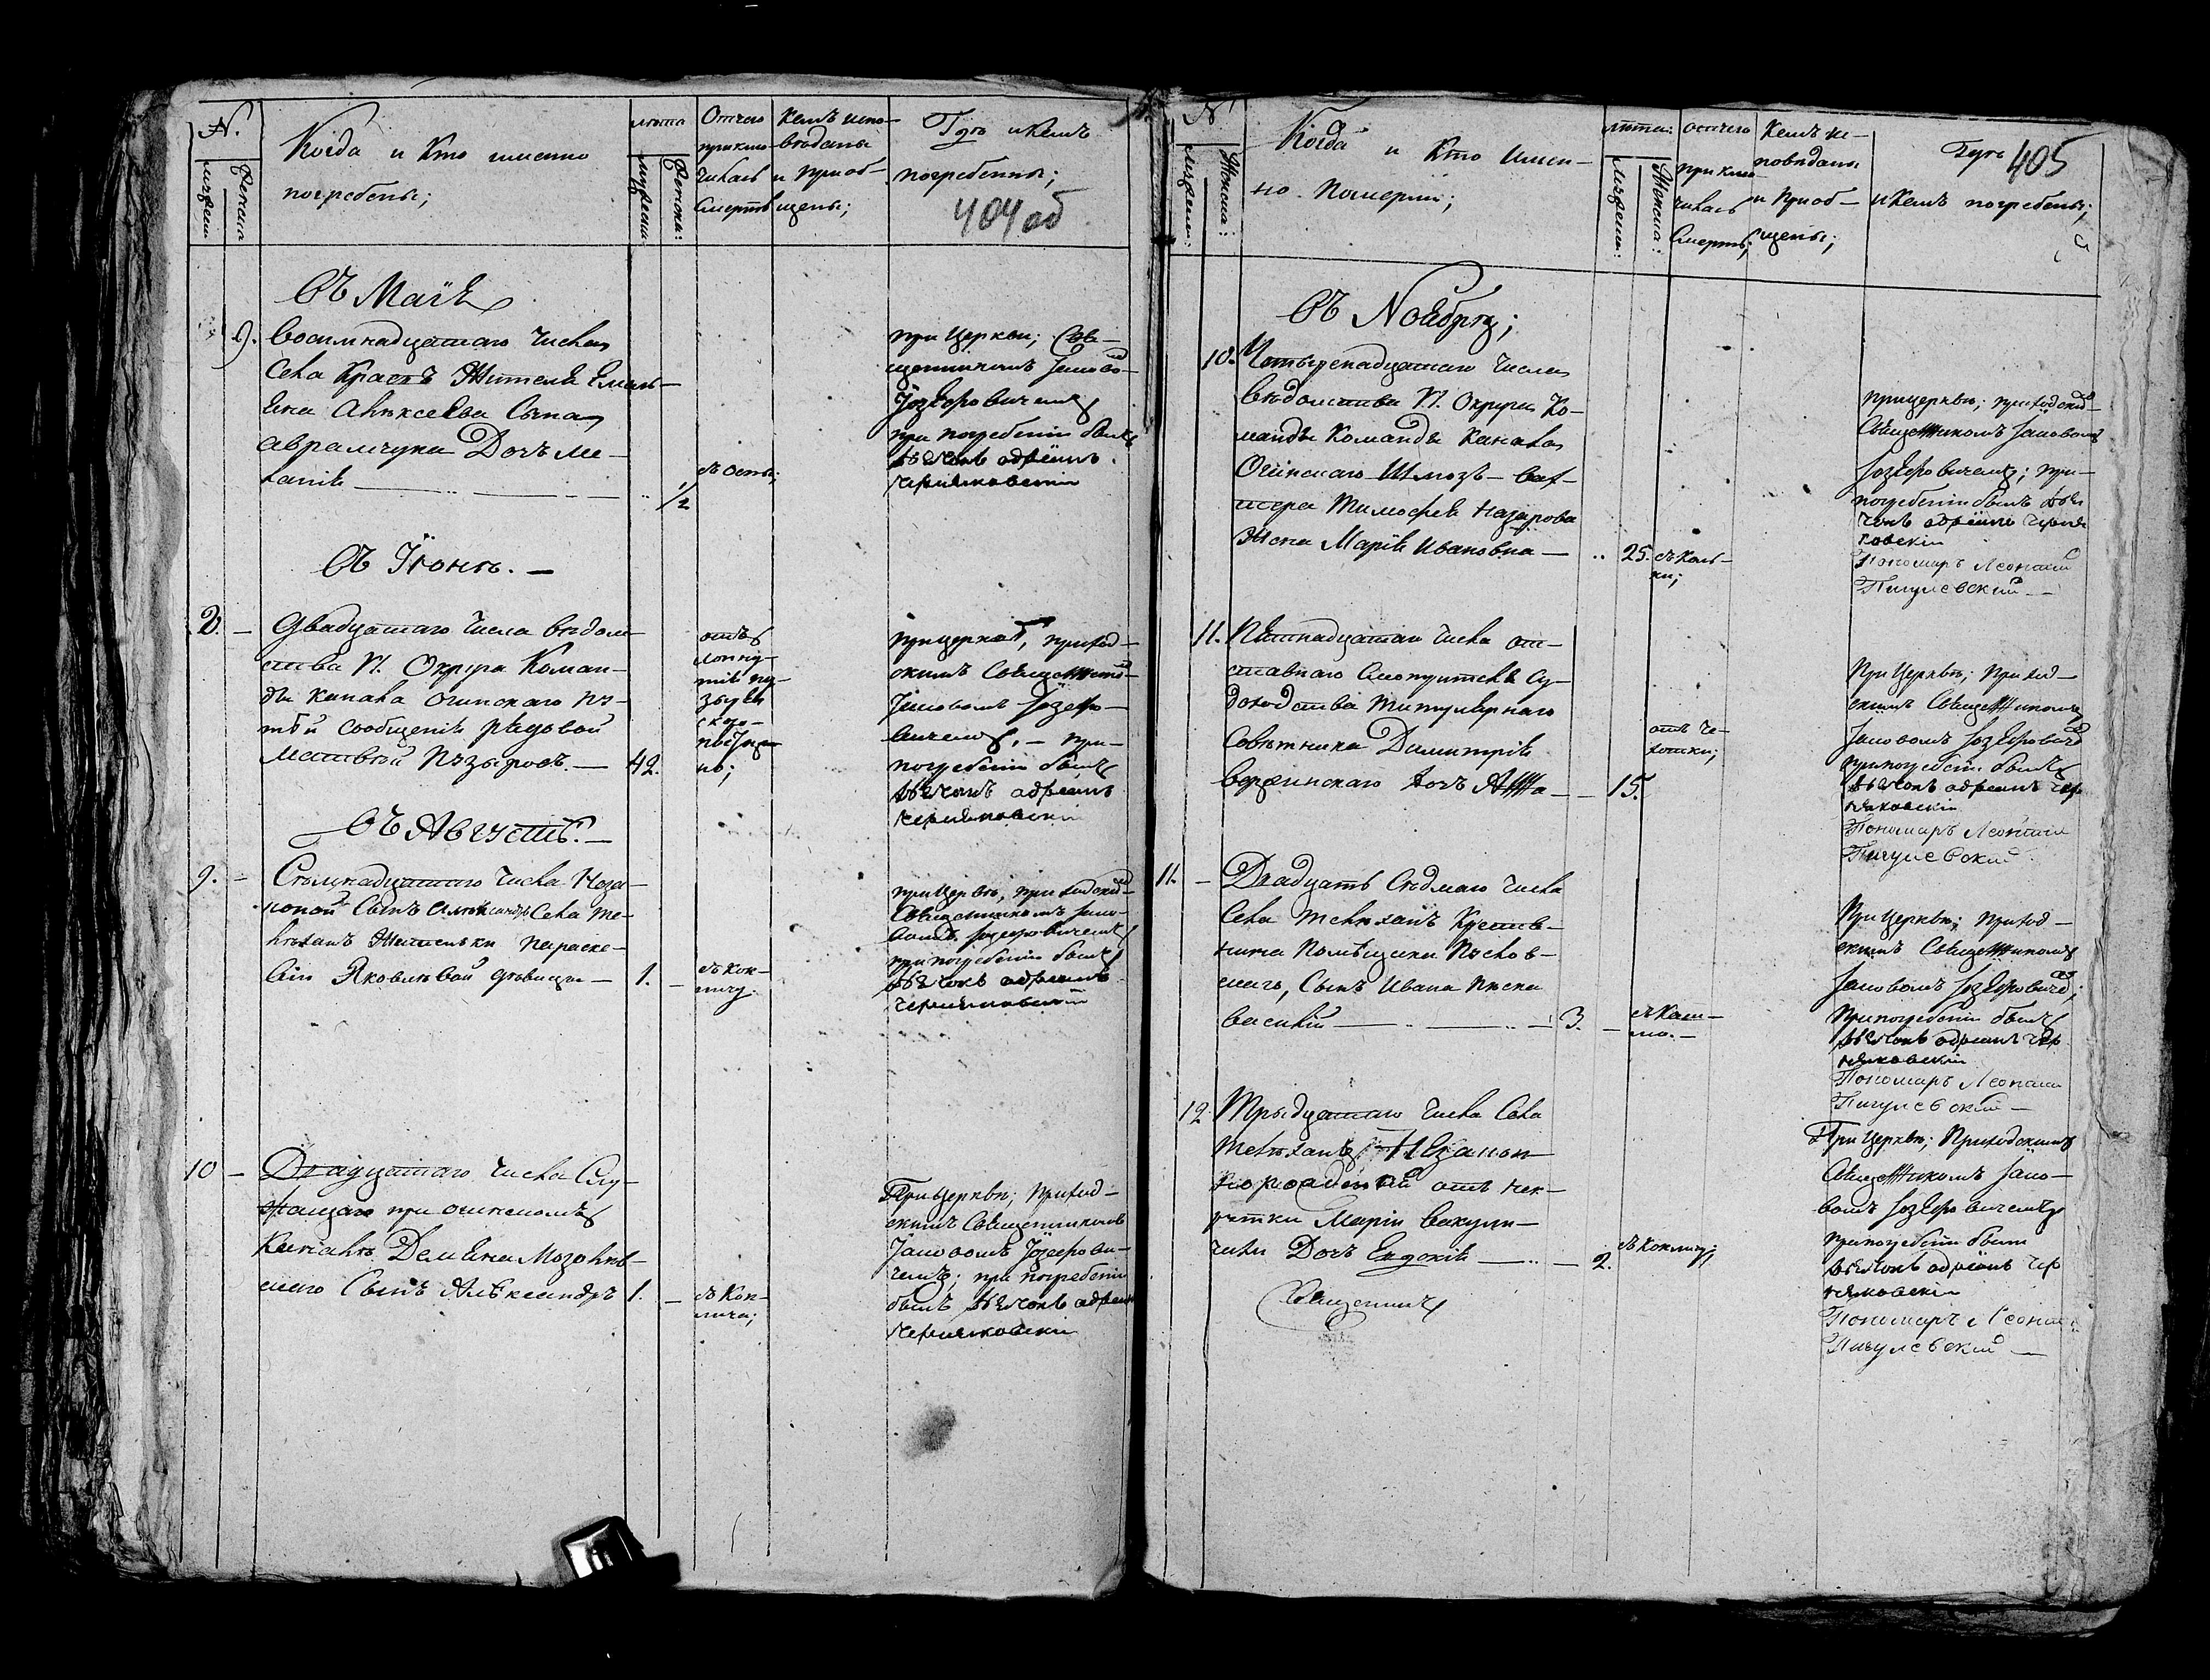 N.
Когда и Кто именно
погребены;
мужеска
женска
лѣта
мужеска
женска:
Отчего
приклю
чилась
смерть
Кемъ испо-
вѣданы
и приоб-
щены;
Гдѣ и Кемъ
погребенны;
404 об
Въ Маіѣ
9.
Восимнадцатаго Числа
Села Жителя Емель-
Алѣксеѣва Сына
Аврамчука Дочь Ме-
ланія
1/2
съ Оспы;
при Церкви; Свя-
щенникомъ
Іозефовичемъ
при погребеніи былъ
дьячокъ адреянъ
черняковскій
Въ Іюнѣ. —
8. —
Двадцатаго Числа вѣдом-
ства VI. Округа Коман-
ды канала Огинскаго пу-
тѣй сообщенія рядовой
Матвѣй — 42.
отъ
при церкви, приход-
скимъ Священнико-
Іозефо-
вичемъ, — при-
погребеніи былъ
дьячокъ адреянъ
черняковскій
Въ Августѣ. —
9. —
Сѣмнадцатаго Числа Неза-
конной Сынъ Алѣксандръ Села Те-
лѣханъ Жительки Параске-
віи Яковлѣвой дѣвицы — 1. —
съ Кок-
лушу.
при Церквѣ, приходскимъ
Священникомъ
Іозефовичемъ
при погребеніи былъ
дьячокъ адреянъ
черняковскій
10 —
Двадцатаго Числа Слу-
жащаго при огинскомъ
Каналѣ Демѣна
Сынъ Алѣксандръ 1. —
съ Кок-
люча;
При Церквѣ; Приход-
скимъ Священникомъ
Іозефови-
чемъ; при погребеніи
былъ дьячокъ адреян
черняковскій
N
Когда и Кто Имен-
но Померли;
мужеска:
Женска:
лѣта:
мужеска:
Женска:
отчего
приклю-
чилась
Смерть;
Кемъ ис-
повѣданы
и Приоб-
щены;
Гдѣ 405
и Кемъ погребены;
Въ Ноябрѣ;
10.
Четырнадцатаго Числа
Вѣдомства VI. Округа Ко-
манды Команды Канала
Огинскаго Шлюзъ — Вах-
тера Тимофея Назарова
Жена Марія Ивановна — .. 25.
съ Коль-
ки;
При церквѣ; приходски-
Священникомъ
Іозефовичемъ; при-
погребеніи былъ дья
чокъ адреянъ черня
ковскій
Пономарь Леонтій
Пигулевский —
11.
Пятнадцатаго Числа от-
ставнаго Смотрителя Су-
доходства Титулярнаго
Совѣтника Димитрія
дочь Анна — — 15.
отъ че-
хотки;
При Церквѣ; Приход-
скимъ Священникомъ
Іозефовиче
при погребеніи былъ
дьячокъ адреянъ чер
няковскій
Пономарь Леонтій
Пигулевский
11. —
Двадцать Сѣдмаго Числа
Села Телѣханъ Крестя-
нина Помѣщика
Сынъ Ивана
Василій — 3. —
съ Каш-
ля. —
При Церквѣ; Приход-
скимъ Священникомъ
Іозефовиче;
При погребеніи былъ
дьячокъ адреянъ чер
няковскій
Пономарь Леонтій
Пигулевский —
12
Трыдцатаго Числа Села
Телѣханъ Незакон-
норожденная отъ
Маріи Вакули-
чики Дочь Евдокія — 2.
съ Коклюшу;
При Церквѣ; Приходскимъ
Священникомъ
Іозефовичемъ
при погребеніи былъ
дьячокъ адреянъ чер
няковскій
Пономарь Леонтій
Пигулевский —
Священникъ